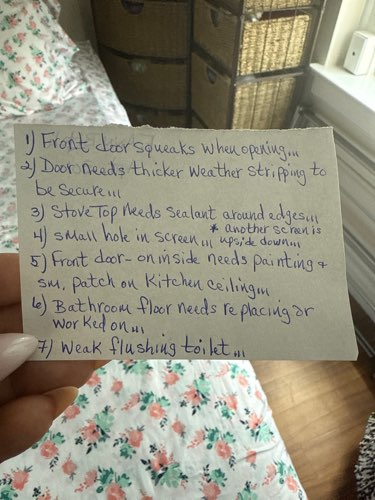 1) Front door squeaks when opening...
2) Door needs thicker weather stripping to
be secure...
3) Stove Top needs sealant around edges...
4) small hole in screen... * another screen is
upside down...
5) Front door - on inside needs painting +
sm. patch on kitchen ceiling...
6) Bathroom floor needs replacing or
worked on...
7) Weak flushing toilet...